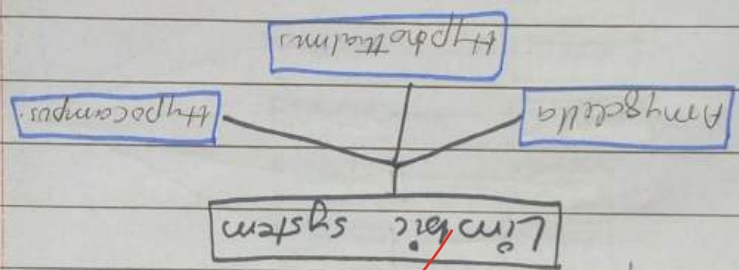 Limbic system
Amygdella
Hypothalmus
Hypocampus.